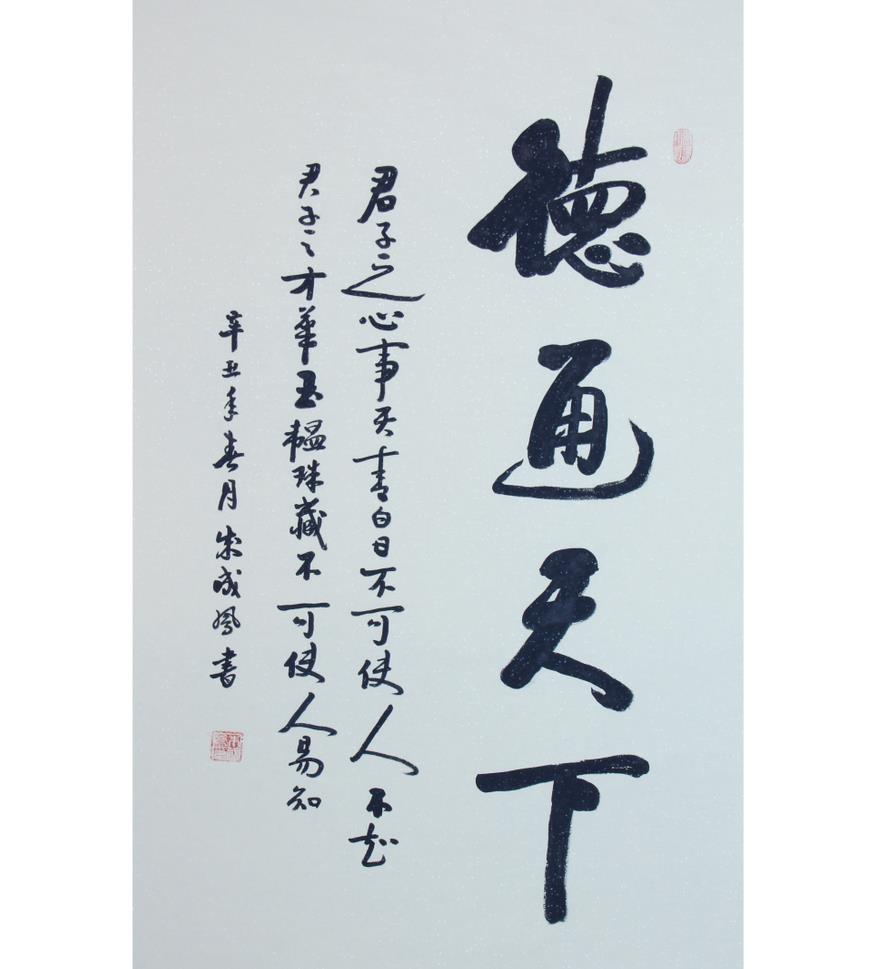 德通天下
君子之心事天青白日不可使人不知
君子之才華玉韞珠藏不可使人易知
辛丑年春月朱成鳳書